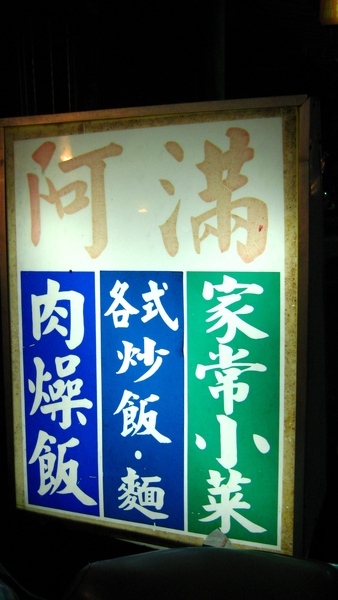 阿滿
肉燥飯
各式炒飯·麵
家常小菜